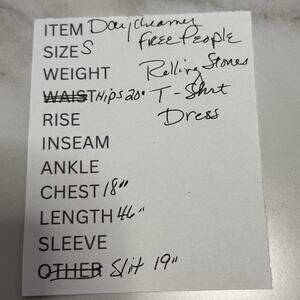 ITEM Daydreamer
SIZE S Free People
WEIGHT Rolling Stones
WAIST Hips 20" T-Shirt
RISE Dress
INSEAM
ANKLE
CHEST 18"
LENGTH 46"
SLEEVE
OTHER Slit 19"